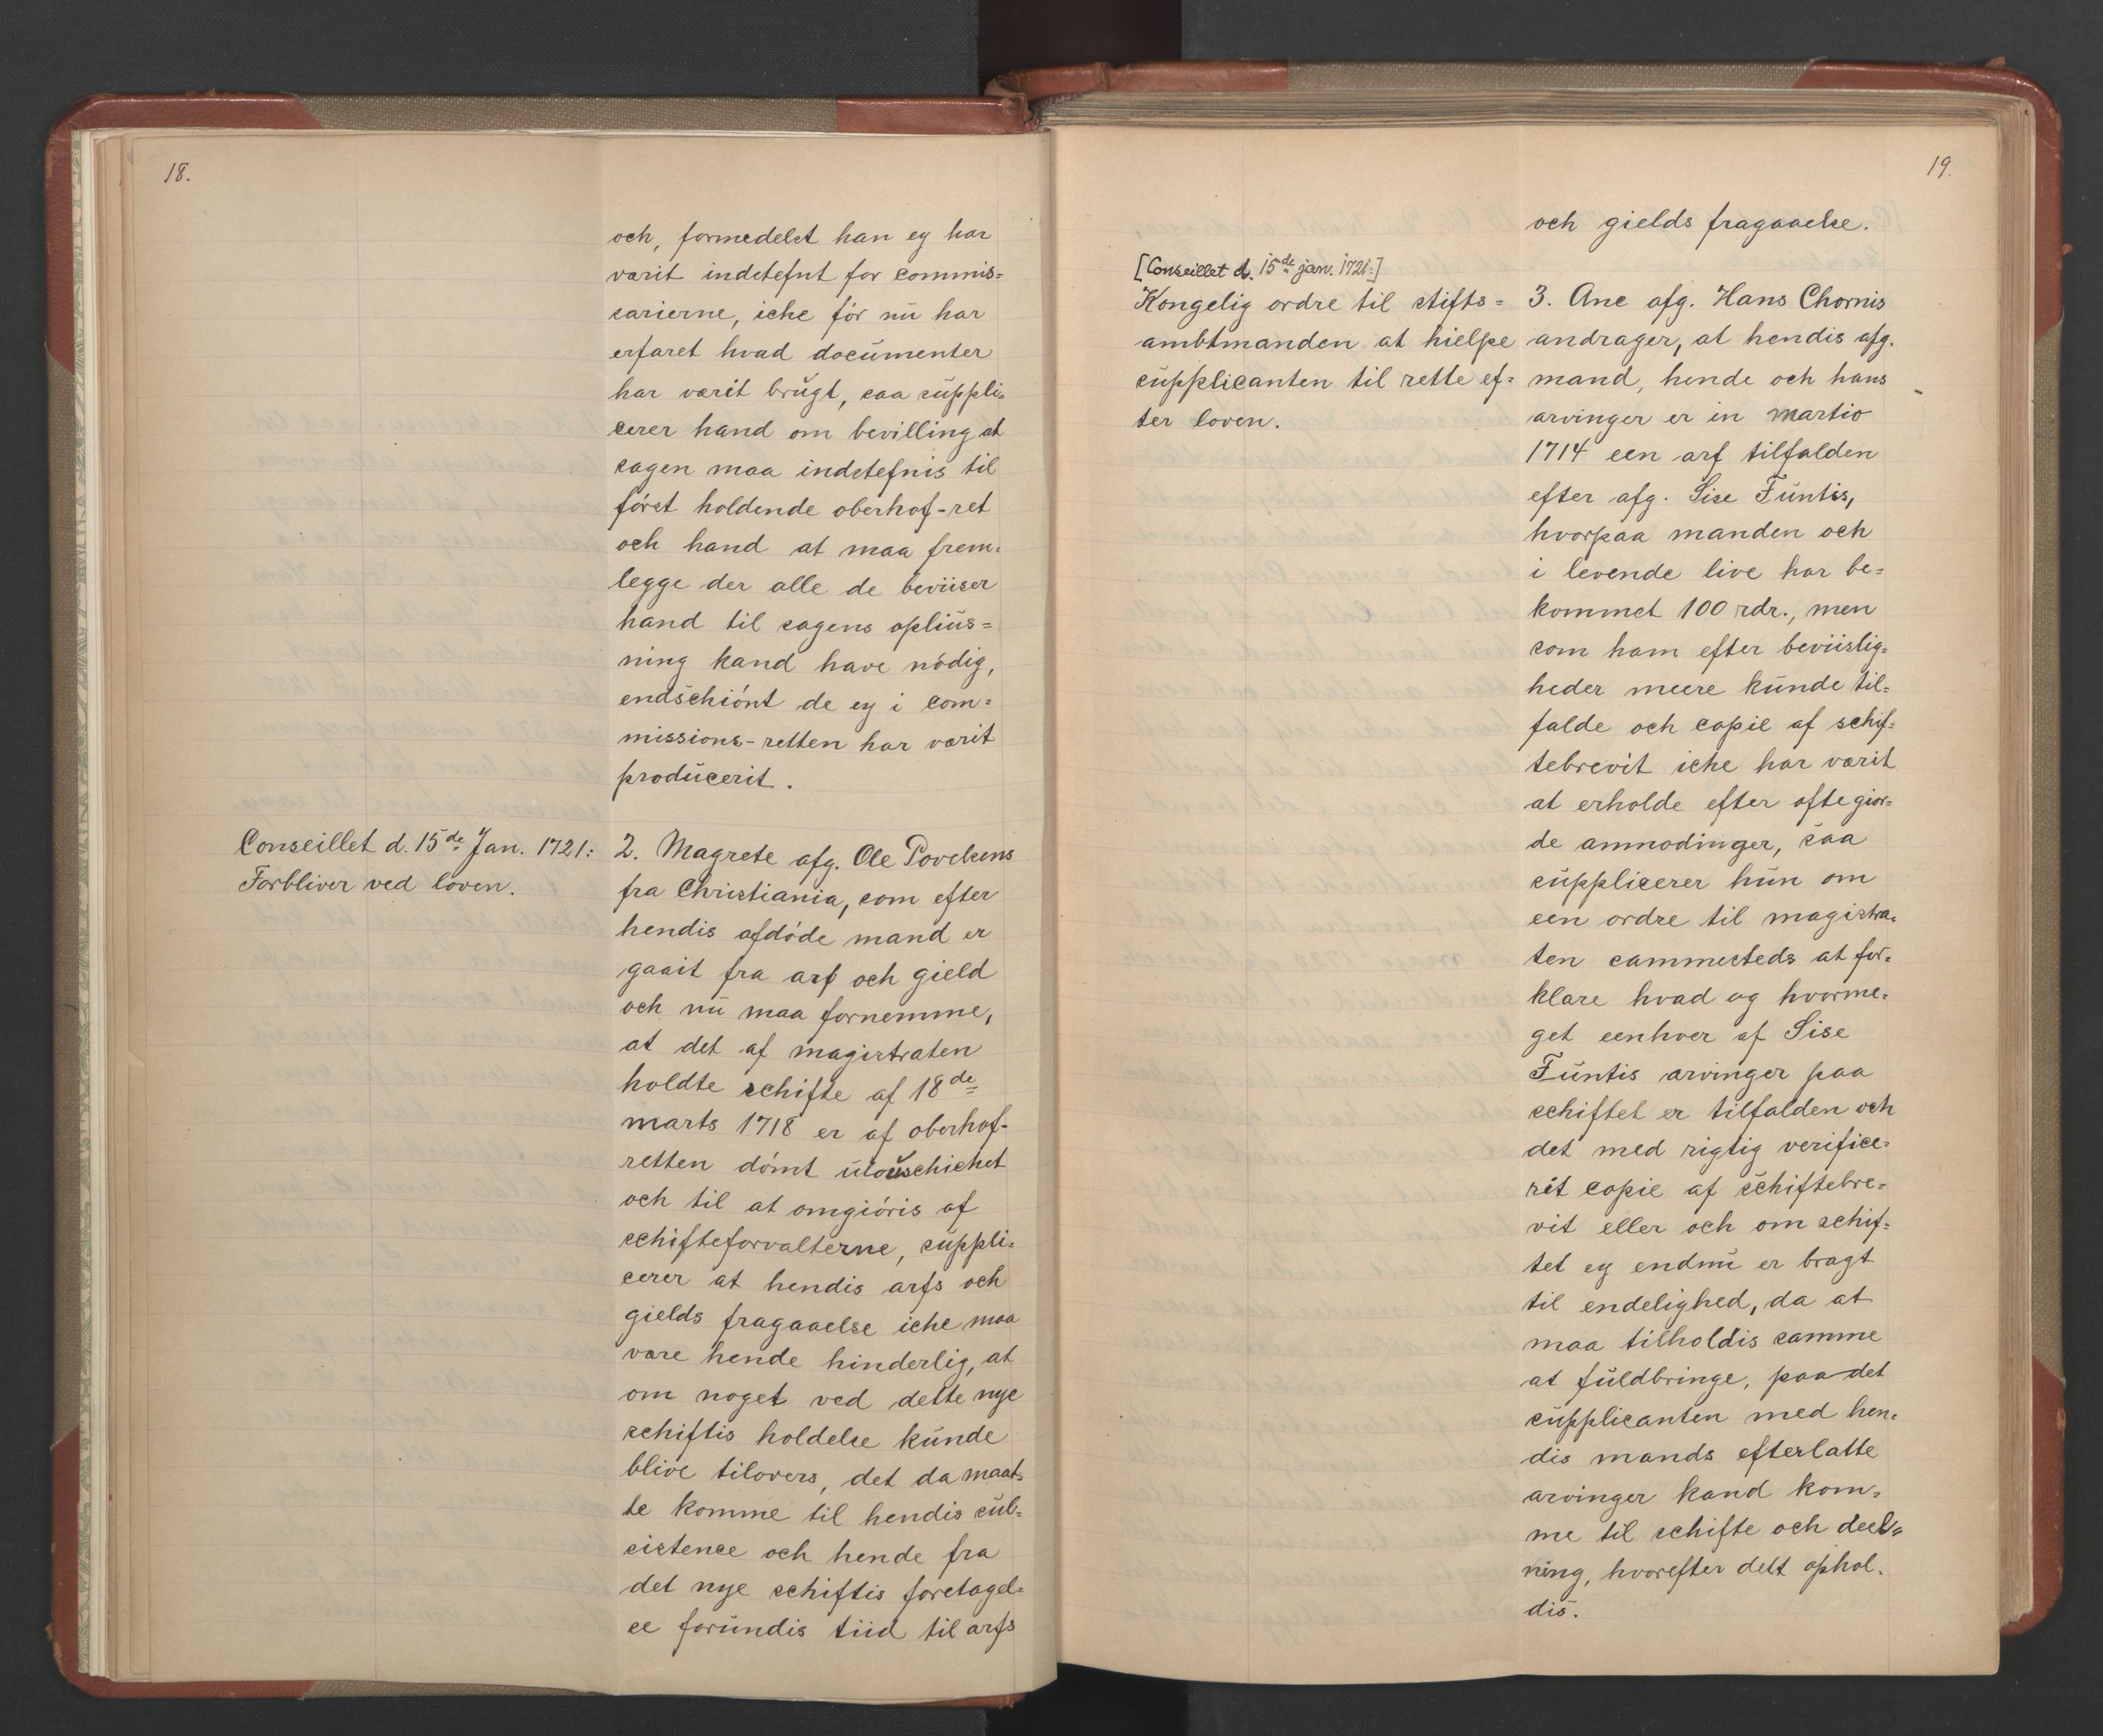 18.
och, formedelst han ey har
værit indstefnt for commis=
sarierne, iche för nü har
erfaret hvad documenter
har værit brŭgt, saa süppli=
cerer hand om bevilling at
sagen maa indstefnis til
först holdende oberhof-ret
och hand at maa frem=
legge der alle de beviiser
hand til sagens opliüs=
ning kand have nödig,
endschiönt de ey i com=
missions-retten har værit
prodücerit.
Conseillet d. 15de Jan. 1721:
Forbliver ved loven.
2. Magrete afg. Ole Povelsens
fra Christiania, som efter
hendis afdöde mand er
gaait fra arf och gield
och nü maa fornemme,
at det af magistraten
holdte schifte af 18de
marts 1718 er af oberhof-
retten dömt üloŭschichet
och til at omgiöris af
schifteforvalterne, süppli=
cerer at hendis arfs och
gields fragaaelse iche maa
være hende hinderlig, at
om noget ved dette nye
schiftis holdelse künde
blive tilovers, det da maat=
te komme til hendis süb=
sistence och hende fra
det nye schiftis foretagel=
se forŭndis tiid til arfs
19.
och gields fragaaelse.
[Conseillet d. 15de jan. 1721:]
Kongelig ordre til stifts=
ambtmanden at hielpe
süpplicanten til rette ef=
ter loven.
3. Ane afg. Hans Chornis
andrager, at hendis afg.
mand, hende och hans
arvinger er in martio
1714 een arf tilfalden
efter afg. Sise Füntis,
hvorpaa manden och
i levende live har be=
kommet 100 rdr., men
som ham efter beviislig=
heder meere künde til=
falde och copie af schif=
tebrevit iche har værit
at erholde efter ofte gior=
de anmodinger, saa
süpplicerer hün om
een ordre til magistra=
ten sammesteds at for=
klare hvad og hvorme=
get eenhver af Sise
Füntis arvinger paa
schiftet er tilfalden och
det med rigtig verifice=
rit copie af schiftebre=
vit eller och om schif=
tet ey endnü er bragt
til endelighed, da at
maa tilholdis samme
at füldbringe, paa det
süpplicanten med hen=
dis mands efterlatte
arvinger kand kom=
me til schifte och deel=
ning, hvorefter dett ophol=
dis.